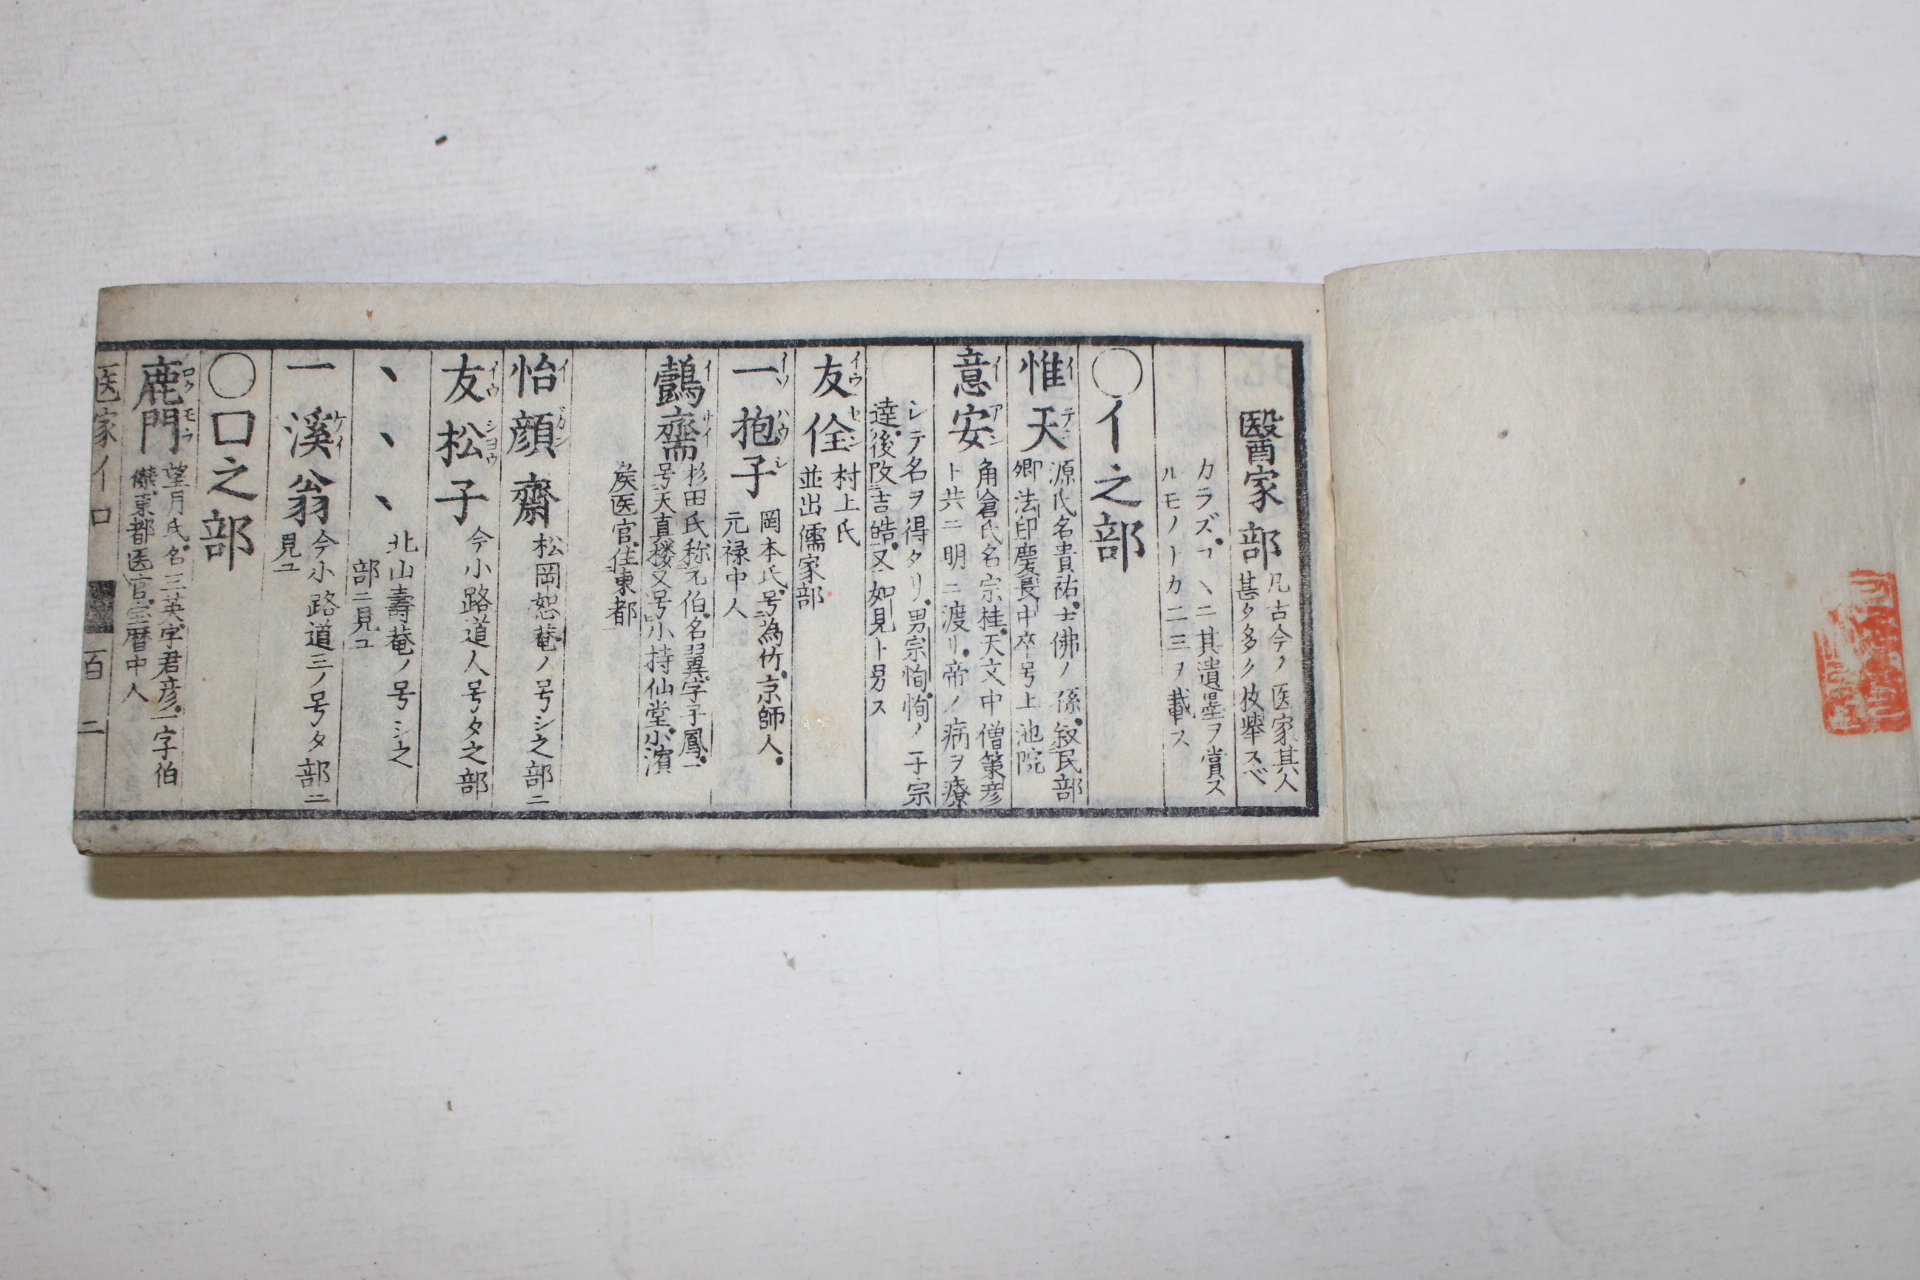 醫家部
凡古今ノ医家其人
甚タ多ク枚擧スベ
カラズコヽニ其遺墨ヲ賞ス
ルモノトカ二三ヲ載ス
〇イ之部
惟天 イテン
源氏名貴祐士佛ノ孫叙民部
卿法印慶長中卒号上池院
意安 イアン
角倉氏名宗桂天文中僧策彦
ト共ニ明ニ渡リ帝ノ病ヲ療
シテ名ヲ得タリ男宗恂恂ノ子宗
達後改吉皓又如見ト号ス
友佺 イウセン
村上氏
並出儒家部
一抱子 イツハウシ
岡本氏号為竹京師人
元禄中人
鷧齋 イサイ
杉田氏称元伯名翼字子鳳一
号天真楼又号小詩仙堂小濵
矦医官住東都
怡顔齋 イガン
松岡恕菴ノ号シ之部ニ
友松子 イウシヨウ
今小路道人号タ之部
ヽヽヽ
北山壽菴ノ号シ之
部ニ見ユ
一溪翁 ケイ
今小路道三ノ号タ部ニ
見ユ
〇ロ之部
鹿門 ロクモウ
望月氏名三英字君彦一字伯
傑東都医官宝暦中人
医家イロ
百二